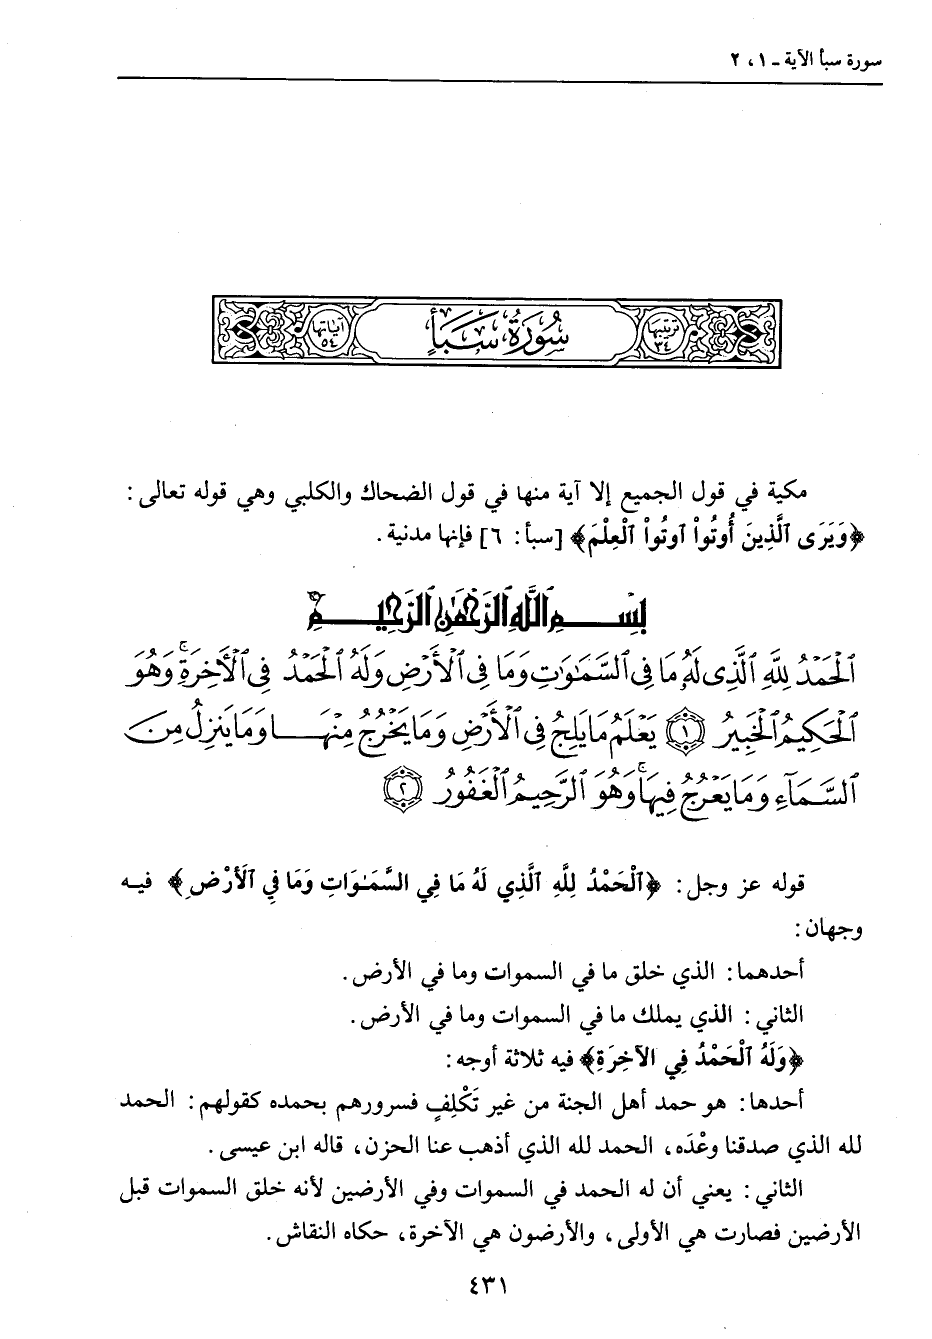 سورة سبأ الآية ـ ١ ، ٢
ترتيبها ٣٤ سُورَةُ سَبَأٍ آياتها ٥٤
مكية في قول الجميع إلا آية منها في قول الضحاك والكلبي وهي قوله تعالى :
﴿وَيَرَى ٱلَّذِينَ أُوتُواْ اوتُواْ ٱلْعِلْمَ﴾ [سبأ : ٦] فإنها مدنية .
بِسْمِ ٱللَّهِ ٱلرَّحْمَٰنِ ٱلرَّحِيمِ
ٱلْحَمْدُ لِلَّهِ ٱلَّذِى لَهُۥ مَا فِى ٱلسَّمَٰوَٰتِ وَمَا فِى ٱلْأَرْضِ وَلَهُ ٱلْحَمْدُ فِى ٱلْأَخِرَةِۚ وَهُوَ
ٱلْحَكِيمُ ٱلْخَبِيرُ ١ يَعْلَمُ مَا يَلِجُ فِى ٱلْأَرْضِ وَمَا يَخْرُجُ مِنْهَا وَمَا يَنزِلُ مِنَ
ٱلسَّمَآءِ وَمَا يَعْرُجُ فِيهَاۚ وَهُوَ ٱلرَّحِيمُ ٱلْغَفُورُ ٢
قوله عز وجل : ﴿ٱلْحَمْدُ لِلَّهِ ٱلَّذِي لَهُ مَا فِي السَّمَٰوَاتِ وَمَا فِي ٱلَأرْضِ﴾ فيه
وجهان :
أحدهما : الذي خلق ما في السموات وما في الأرض .
الثاني : الذي يملك ما في السموات وما في الأرض .
﴿وَلَهُ ٱلْحَمْدُ فِي الآخِرَةِ﴾ فيه ثلاثة أوجه :
أحدها : هو حمد أهل الجنة من غير تَكْلِفٍ فسرورهم بحمده كقولهم : الحمد
لله الذي صدقنا وعْدَه ، الحمد لله الذي أذهب عنا الحزن ، قاله ابن عيسى .
الثاني : يعني أن له الحمد في السموات وفي الأرضين لأنه خلق السموات قبل
الأرضين فصارت هي الأولى ، والأرضون هي الآخرة ، حكاه النقاش .
٤٣١